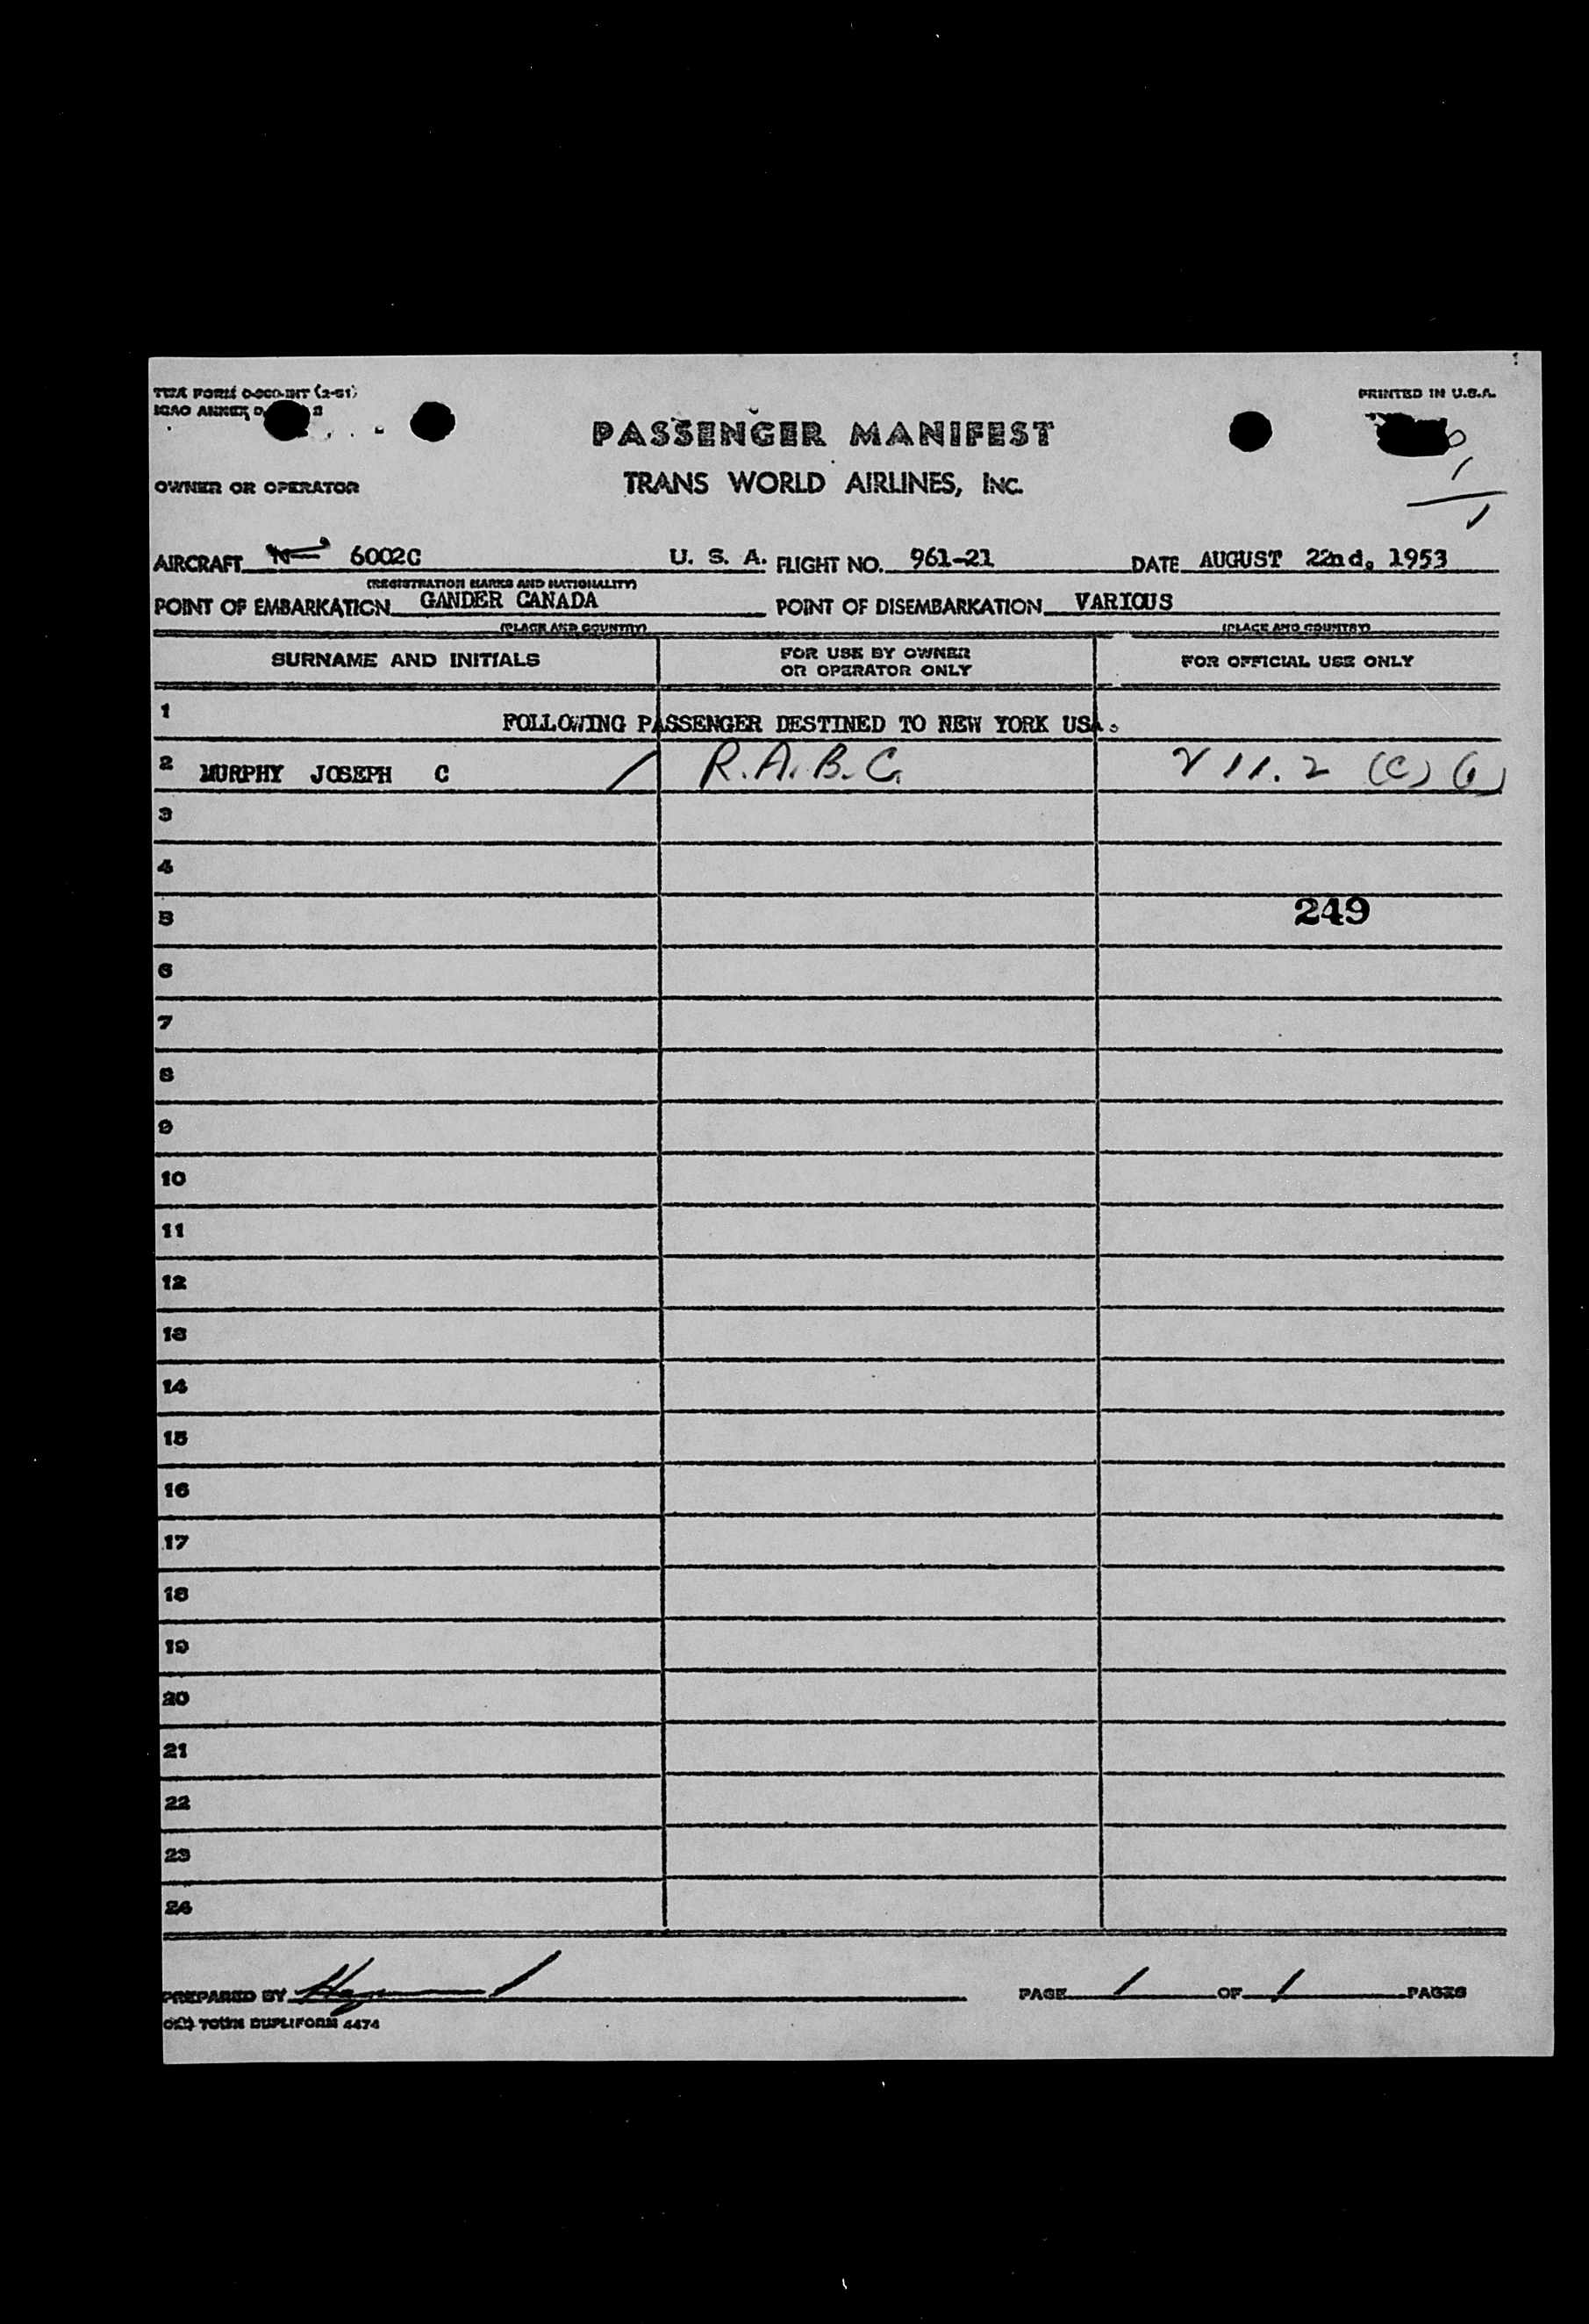 TWA FORM O-900-INT (2-51)
PRINTED IN U.S.A.
ICAO ANNEX 9
PASSENGER MANIFEST
OWNER OR OPERATOR TRANS WORLD AIRLINES, INC.
AIRCRAFT N 6002C U. S. A. FLIGHT NO. 961-21 DATE AUGUST 22nd, 1953
(REGISTRATION MARKS AND NATIONALITY)
POINT OF EMBARKATION GANDER CANADA POINT OF DISEMBARKATION VARIOUS
(PLACE AND COUNTRY) (PLACE AND COUNTRY)
SURNAME AND INITIALS FOR USE BY OWNER OR OPERATOR ONLY FOR OFFICIAL USE ONLY
1 FOLLOWING PASSENGER DESTINED TO NEW YORK USA.
2 MURPHY JOSEPH C / R.A.B.C. V 11.2 (C) (1)
3
4
5 249
6
7
8
9
10
11
12
13
14
15
16
17
18
19
20
21
22
23
24
PREPARED BY PAGE 1 OF 1 PAGES
OLD TOWN DUPLIFORM 4474